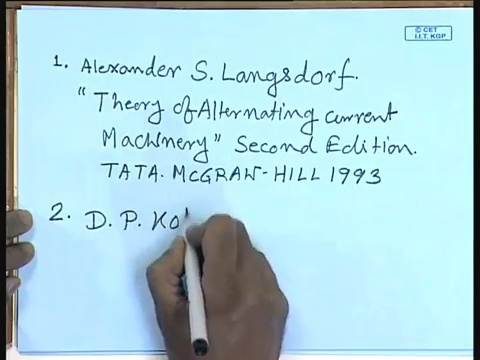 © CET
I.I.T. KGP
1. Alexander S. Langsdorf.
"Theory of Alternating current
Machinery" Second Edition.
TATA. McGRAW-HILL 1993
2. D. P. Ko